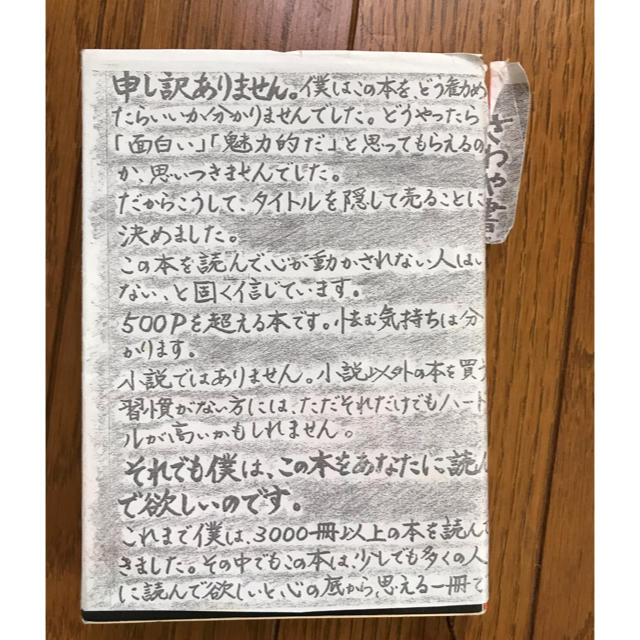 申し訳ありません。僕はこの本を、どう勧め
たらいいか分かりませんでした。どうやったら
「面白い」「魅力的だ」と思ってもらえるの
か、思いつきませんでした。
だからこうして、タイトルを隠して売ることに
決めました。
この本を読んで心が動かされない人はい
ない、と固く信じています。
500Pを超える本です。怯む気持ちは分
かります。
小説ではありません。小説以外の本を買う
習慣がない方には、ただそれだけでもハード
ルが高いかもしれません。
それでも僕は、この本をあなたに読ん
で欲しいのです。
これまで僕は、3000冊以上の本を読んで
きました。その中でもこの本は、少しでも多くの人
に読んで欲しいと、心の底から思える一冊で
さわや書